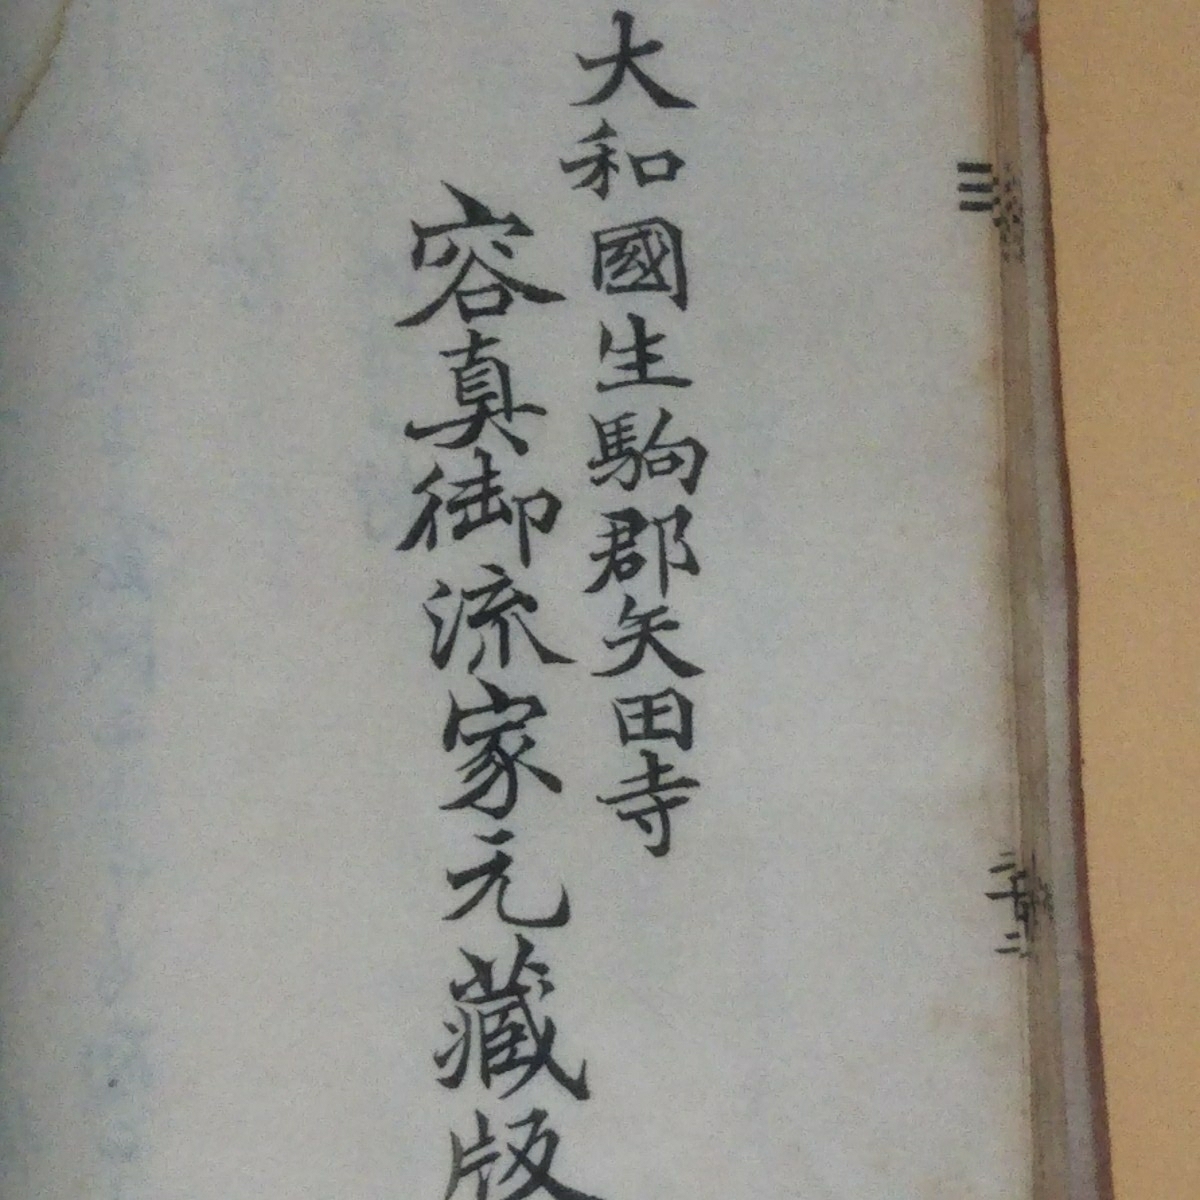 大和國生駒郡矢田寺
容真御流家元藏版